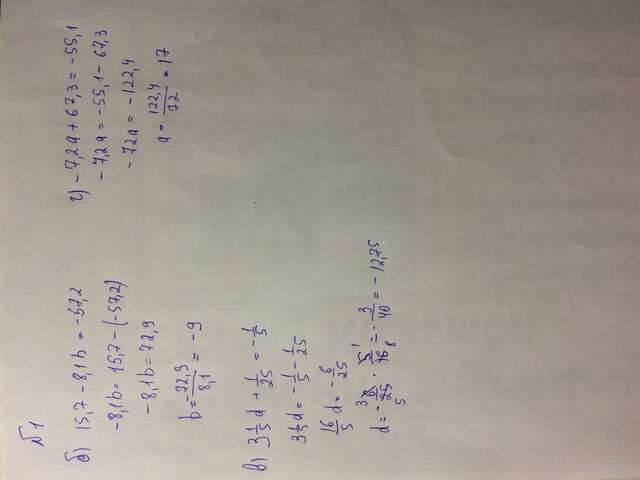 №1
б) 15,7 - 8,1b = -57,2
-8,1b = 15,7 - (-57,2)
-8,1b = 72,9
b = 72,9/8,1 = -9
в) 3 1/5 d + 1/25 = -1/5
3 1/5 d = -1/5 - 1/25
16/5 d = -6/25
d = -6/25 · 5/16 = -3/40 = -12,75
г) -7,2a + 67,3 = -55,1
-7,2a = -55,1 - 67,3
-7,2a = -122,4
a = 122,4/7,2 = 17